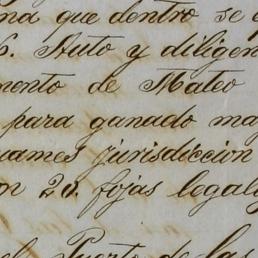 na que dentro se
S. Auto y diligen
mento de Mateo
para ganado ma
uames jurisdiccion
on 20. fojas legal
el Puerto de las